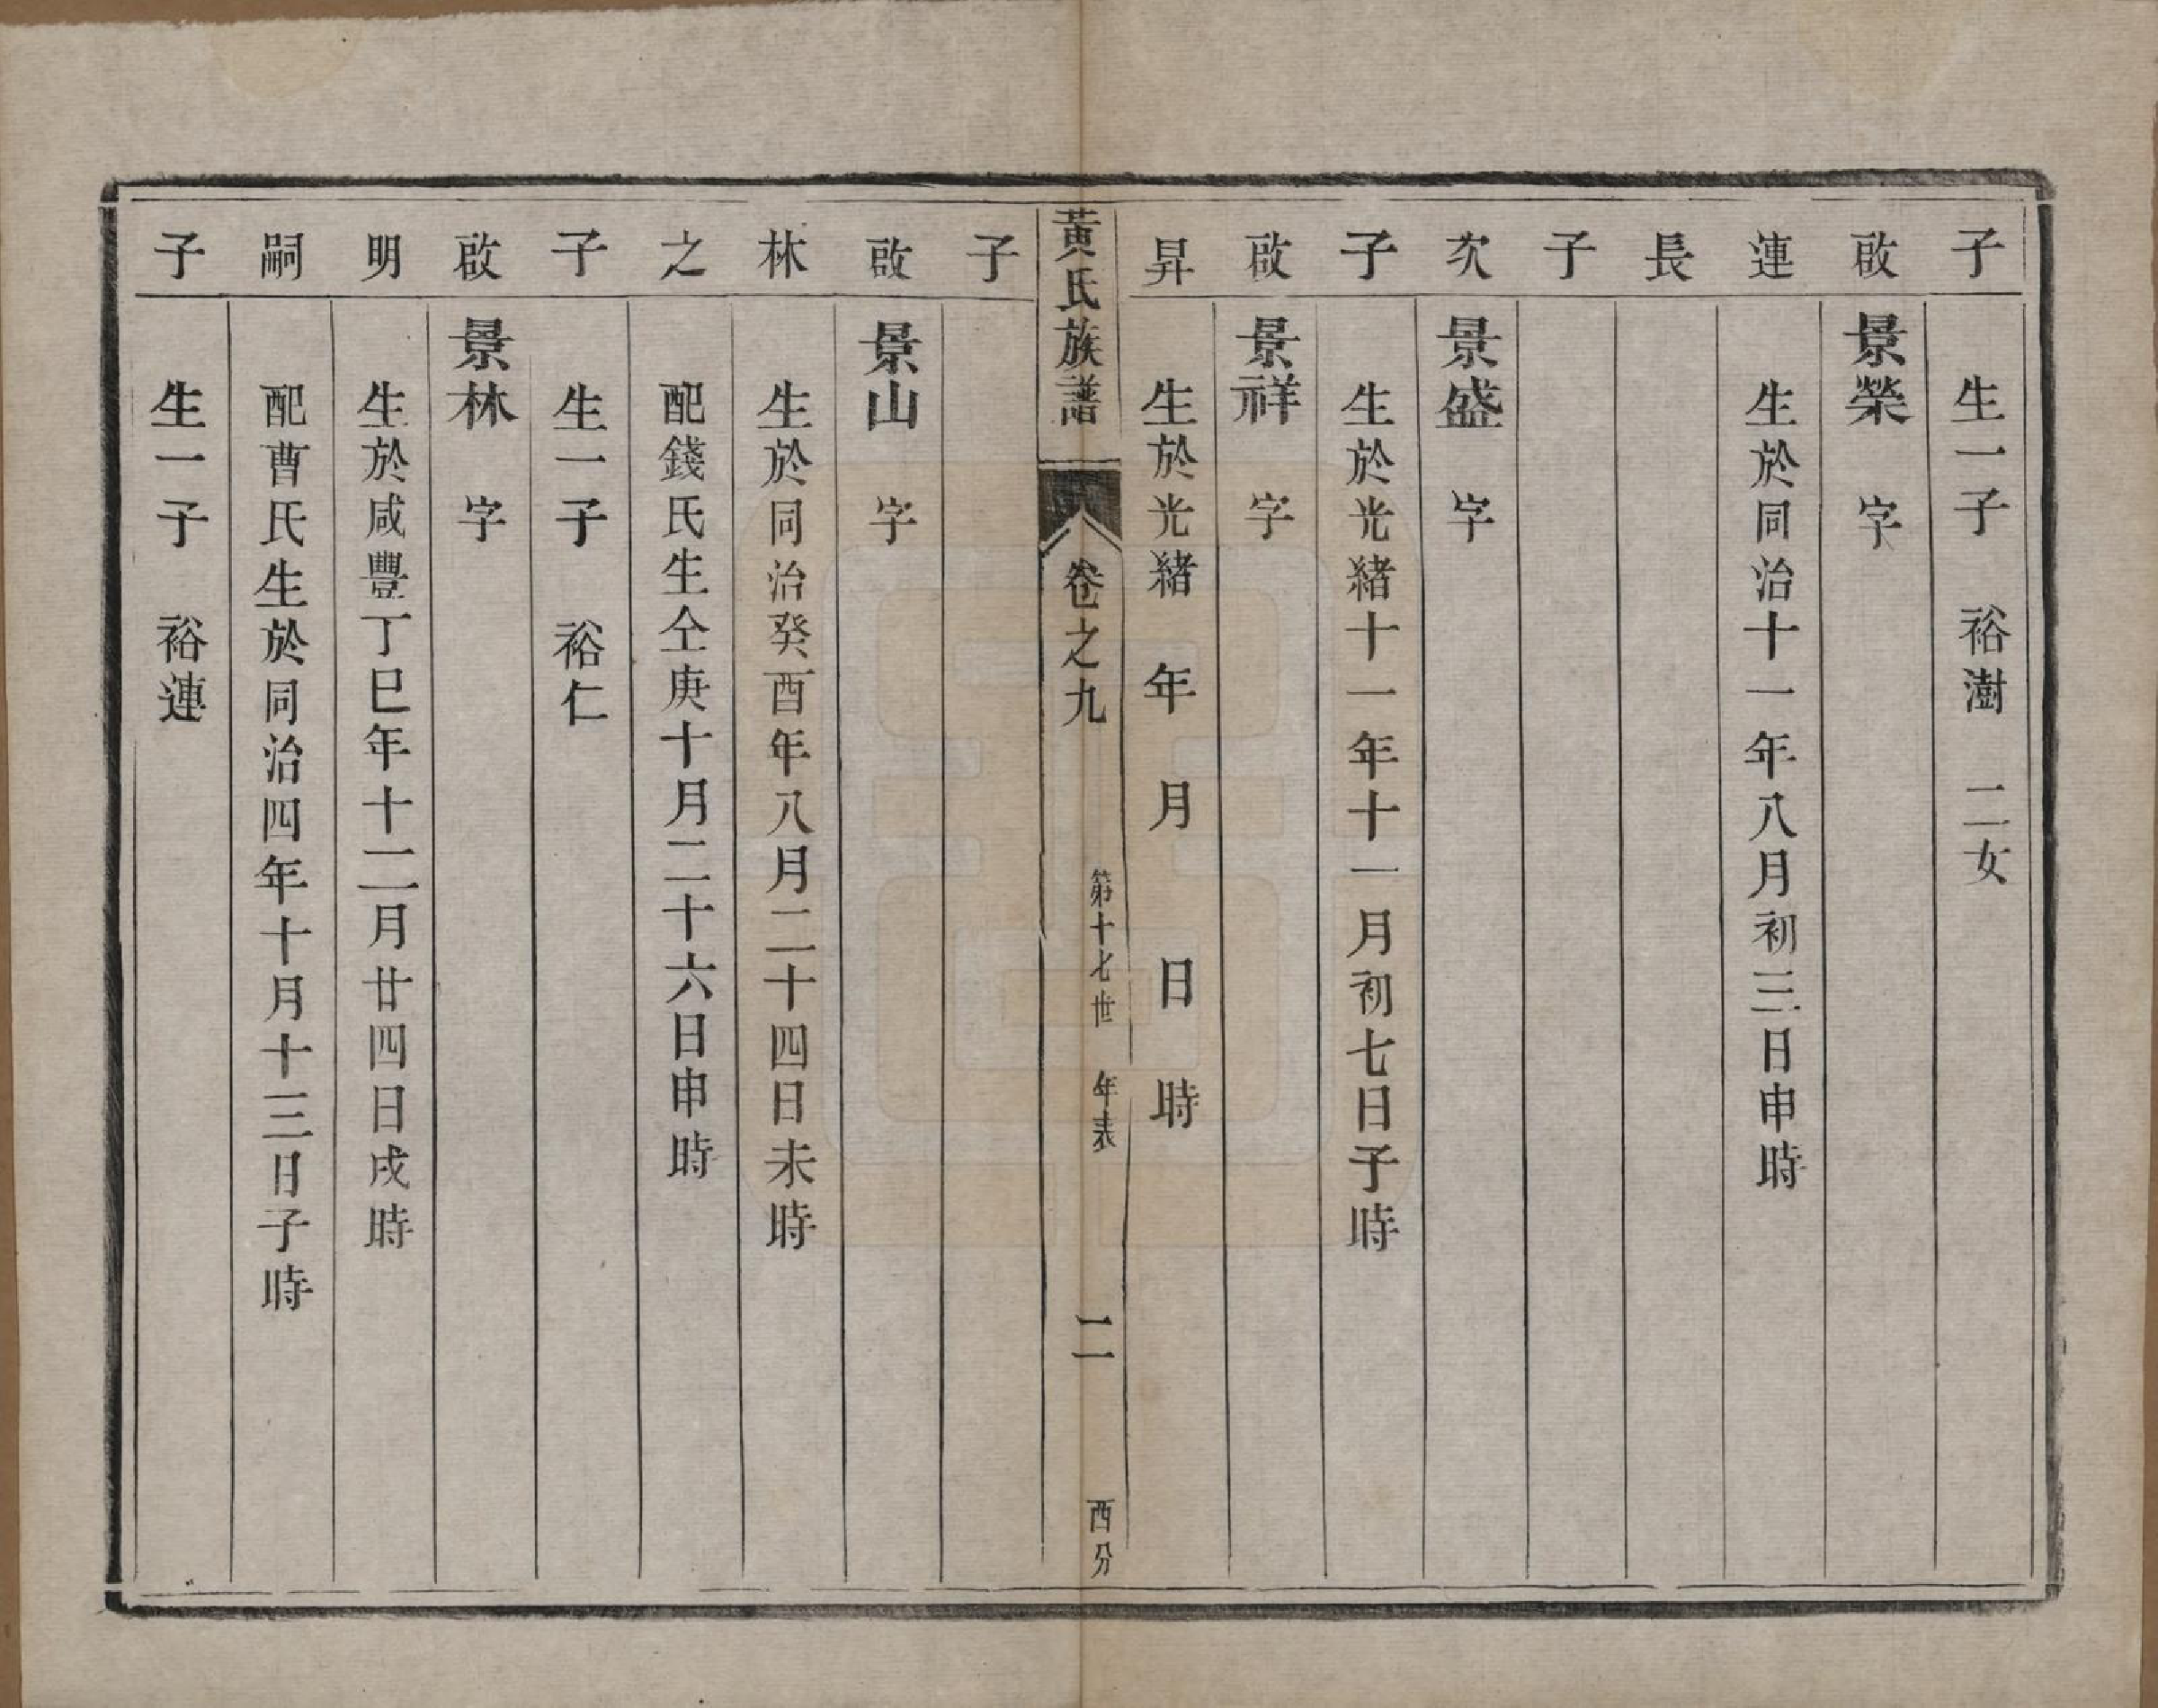 子 生一子 裕澍 二女
啟 景榮 字
連 生於同治十一年八月初三日申時
長
子
次 景盛 字
子 生於光緒十一年十一月初七日子時
啟 景祥 字
昇 生於光緒 年 月 日 時
黃氏族譜 卷之九 第十七世 年表 二 西分
子
啟 景山 字
林 生於同治癸酉年八月二十四日未時
之 配錢氏生仝庚十月二十六日申時
子 生一子 裕仁
啟 景林 字
明 生於咸豐丁巳年十二月廿四日戌時
嗣 配曹氏生於同治四年十月十三日子時
子 生一子 裕連